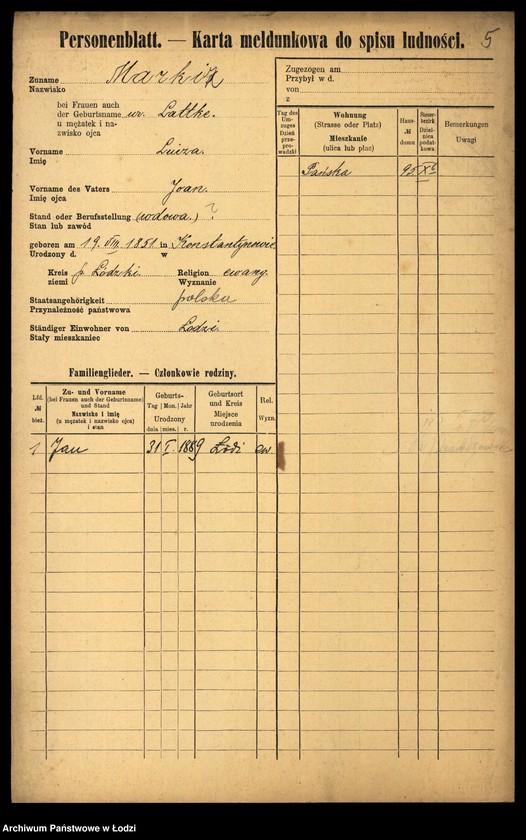 Personenblatt. — Karta meldunkowa do spisu ludności. 5
Zuname
Nazwisko
bei Frauen auch
der Geburtsname ur. Lattke.
u mężatek i na-
zwisko ojca
Vorname Luiza.
Imię
Vorname des Vaters Joan.
Imię ojca
Stand oder Berufsstellung (wdowa.) ?
Stan lub zawód
geboren am 19. VIII. 1851 in Konstantynowie
Urodzony d. w
Kreis p. Łódzki. Religion ewang.
ziemi Wyznanie
Staatsangehörigkeit polska
Przynależność państwowa
Ständiger Einwohner von Łodzi.
Stały mieszkaniec
Familienglieder. — Członkowie rodziny.
Lfd. № bież.
Zu- und Vorname
(bei Frauen auch der Geburtsname)
und Stand
Nazwisko i imię
(u mężatek i nazwisko ojca)
i stan
Geburts-
Tag Mon. Jahr
Urodzony
dnia mies. r.
Geburtsort
und Kreis
Miejsce
urodzenia
Rel.
Wyzn.
1 Jan 31 I. 1889 Łódź ew.
Zugezogen am
Przybył w d.
von
z
Tag des
Um-
zuges
Dzień
prze-
prowadzki
Wohnung
(Strasse oder Platz)
Mieszkanie
(ulica lub plac)
Haus-
№
domu
Steuer-
bezirk
Dziel-
nica
podat-
kowa
Bemerkungen
Uwagi
Pańska 95
Archiwum Państwowe w Łodzi